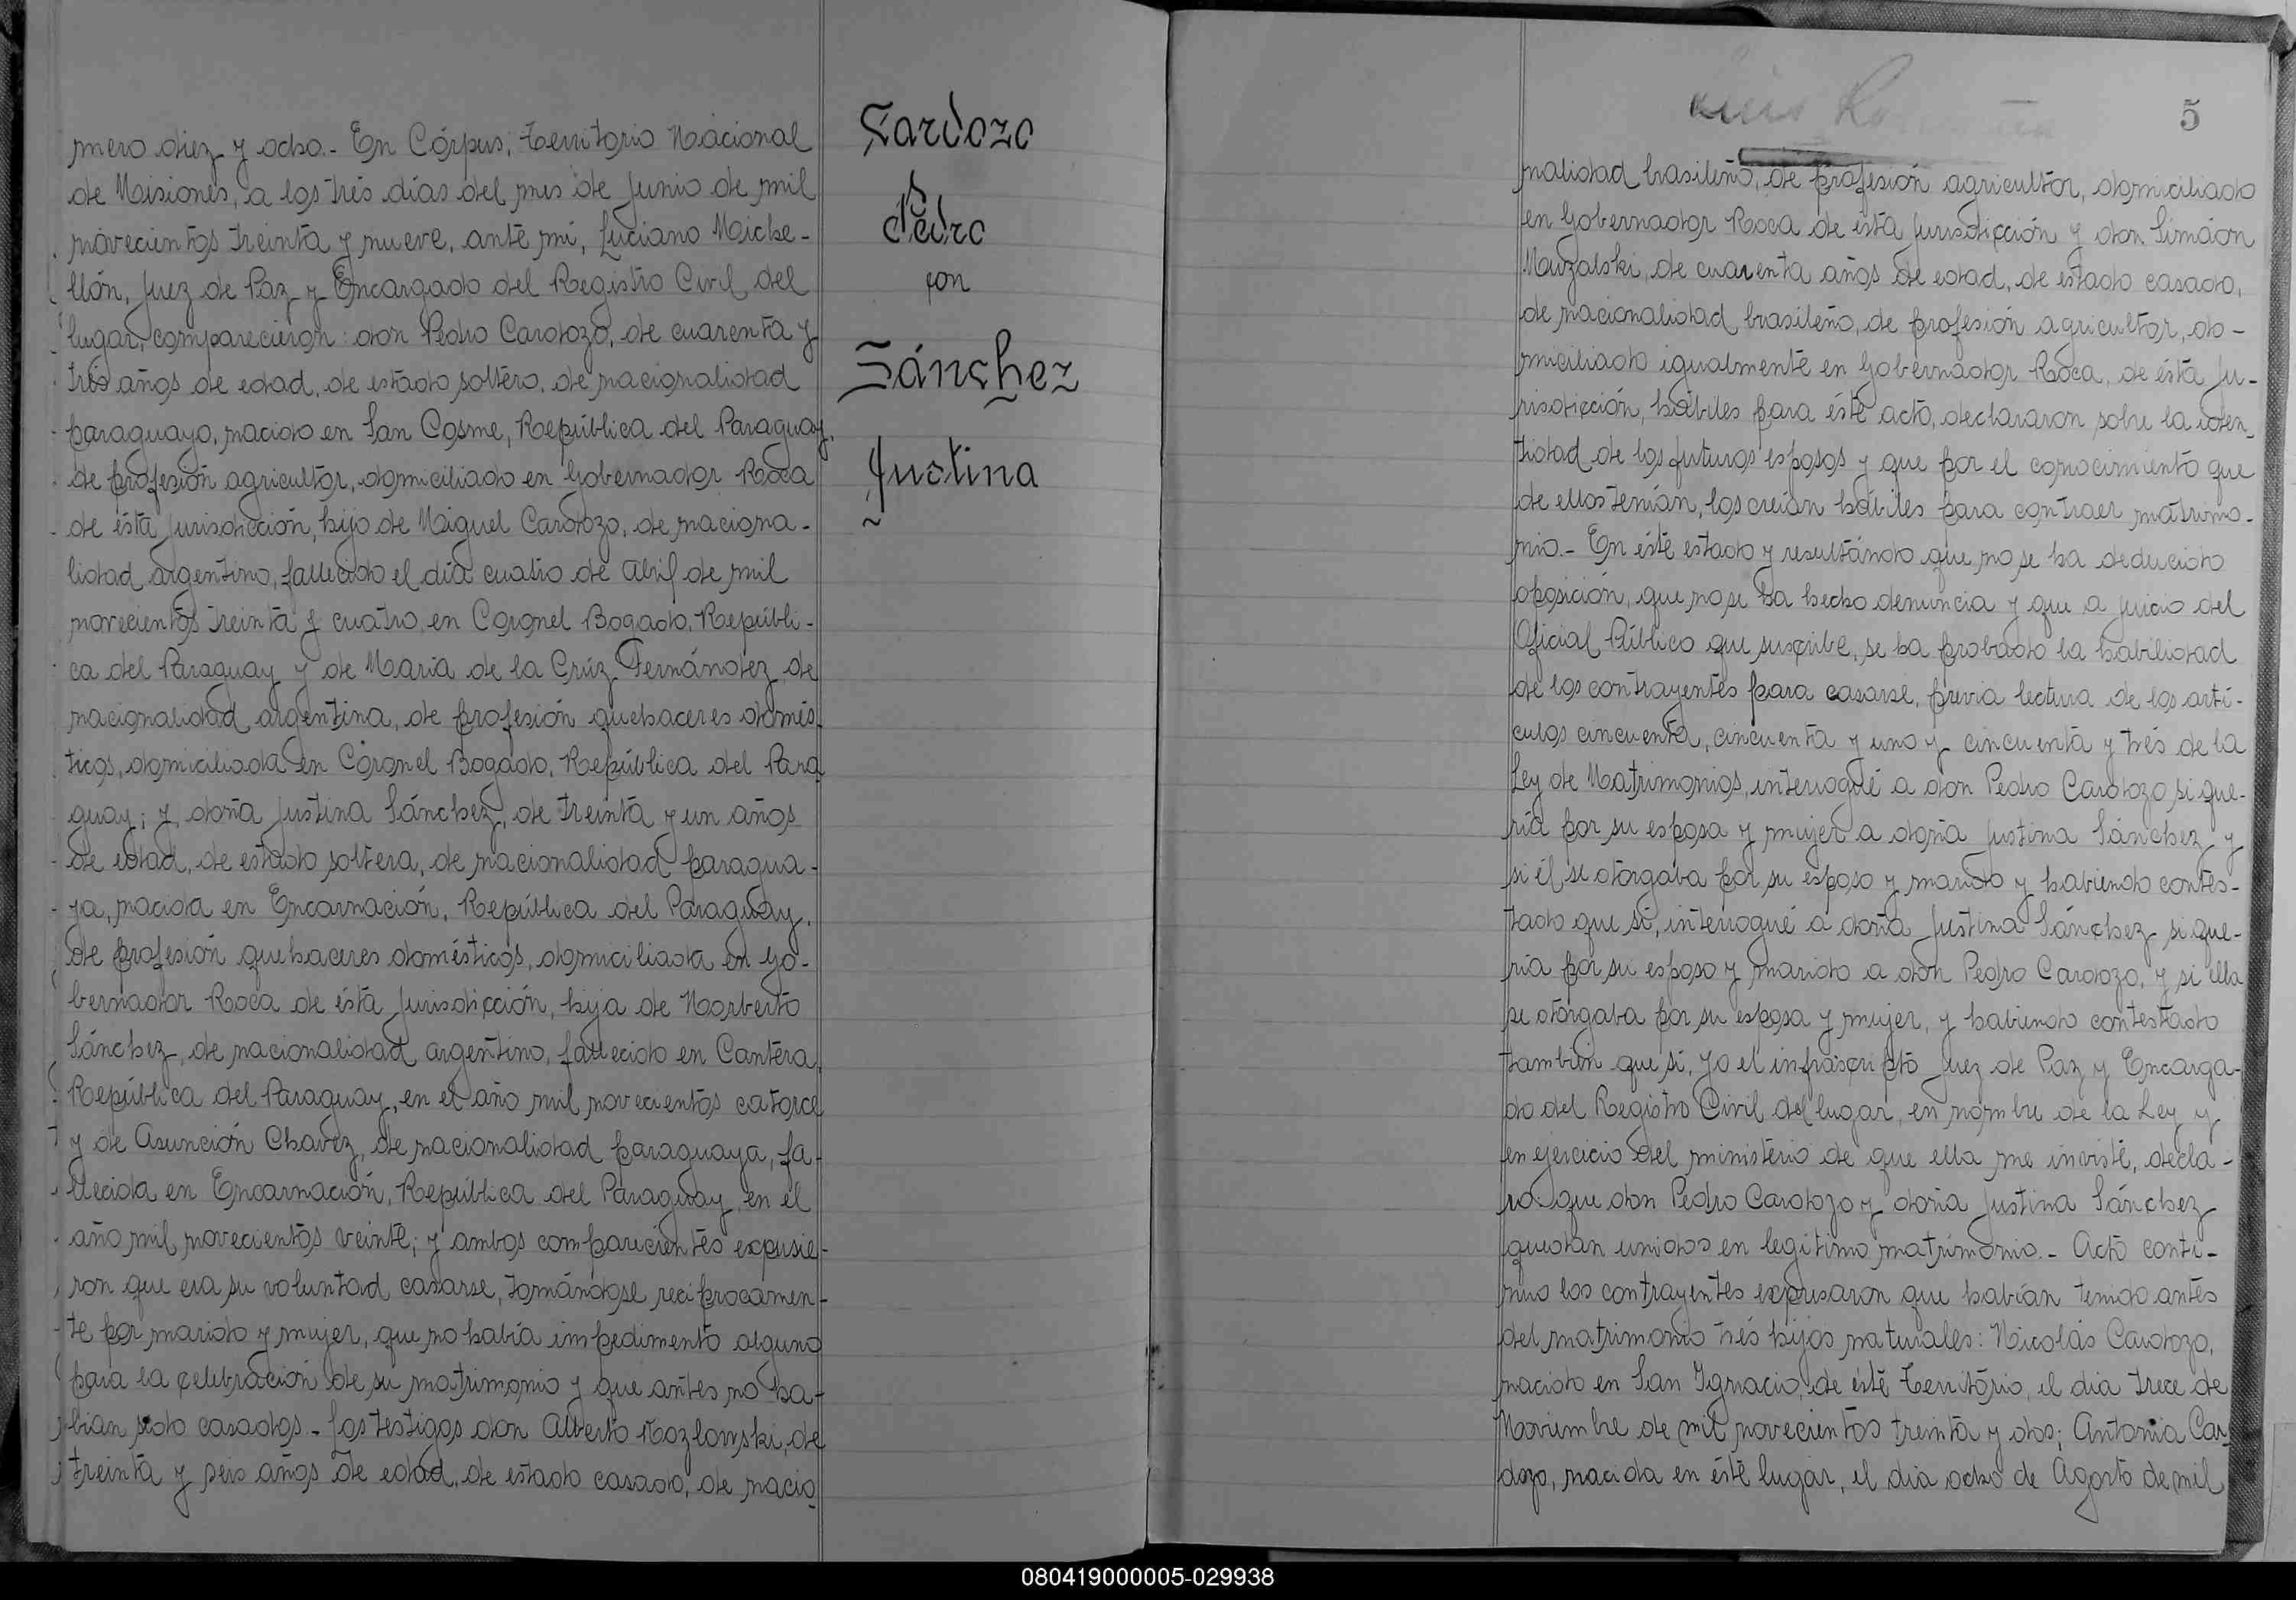 mero diez y ocho.- En Córpus, Territorio Nacional
de Misiones, a los trés días del mes de Junio de mil
novecientos treinta y nueve, ante mi, Luciano Miche-
llón, Juez de Paz y Encargado del Registro Civil del
lugar, comparecieron: don Pedro Cardozo, de cuarenta y
trés años de edad, de estado soltero, de nacionalidad
paraguayo, nacido en San Cosme, República del Paraguay,
de profesión agricultor, domiciliado en Gobernador Roca
de ésta Jurisdicción, hijo de Miguel Cardozo, de naciona-
lidad argentino, fallecido el día cuatro de Abril de mil
novecientos treinta y cuatro, en Coronel Bogado, Repúbli-
ca del Paraguay y de Maria de la Crúz Fernández, de
nacionalidad argentina, de profesión quehaceres domés-
ticos, domiciliada en Córonel Bogado, República del Para
guay; y doña Justina Sánchez, de treinta y un años
de edad, de estado soltera, de nacionalidad paragua-
ya, nacida en Encarnación, República del Paraguay,
de profesión quehaceres domésticos, domiciliada en Go-
bernador Roca de ésta Jurisdicción, hija de Norberto
Sánchez, de nacionalidad argentino, fallecido en Cantera,
República del Paraguay, en el año mil novecientos catorce
y de Asunción Chavez, de nacionalidad paraguaya, fa-
llecida en Encarnación, República del Paraguay, en el
año mil novecientos veinte; y ambos comparecientes expusie-
ron que era su voluntad casarse, tomándose reciprocamen-
te por marido y mujer, que no había impedimento alguno
para la celebración de su matrimonio y que antes no ha-
bian sido casados.- Los testigos don Alberto Kozlowski, de
treinta y seis años de edad, de estado casado, de nacio-
Cardozo
Pedro
con
Sánchez
Justina
5
nalidad brasileño, de profesión agricultor, domiciliado
en Gobernador Roca de ésta Jurisdicción y don Simáon
Muzalski, de cuarenta años de edad, de estado casado,
de nacionalidad brasileño, de profesión agricultor, do-
miciliado igualmente en Gobernador Roca, de ésta Ju-
risdicción, hábiles para éste acto, declararon sobre la iden-
tidad de los futuros esposos y que por el conocimiento que
de ellos tenían, los creían hábiles para contraer matrimo-
nio.- En éste estado y resultándo que no se ha deducido
oposición, que no se ha hecho denuncia y que a juicio del
Oficial Público que suscribe, se ha probado la habilidad
de los contrayentes para casarse, previa lectura de los artí-
culos cincuenta, cincuenta y uno y cincuenta y trés de la
Ley de Matrimonios, interrogué a don Pedro Cardozo si que-
ría por su esposa y mujer a doña Justina Sánchez y
si él se otorgaba por su esposo y marido y habiendo contes-
tado que sí, interrogué a doña Justina Sánchez si que-
ría por su esposo y marido a don Pedro Cardozo, y si ella
se otorgaba por su esposa y mujer, y habiendo contestado
tambien que sí, yo el infrascripto Juez de Paz y Encarga-
do del Registro Civil del lugar, en nombre de la Ley y
en ejercicio del ministerio de que ella me inviste, decla-
ro que don Pedro Cardozo y doña Justina Sánchez
quedan unidos en legitimo matrimonio.- Acto conti-
nuo los contrayentes expresaron que habían tenido antes
del matrimonio trés hijos naturales: Nicolás Cardozo,
nacido en San Ignacio, de éste Territorio, el dia trece de
Noviembre de mil novecientos treinta y dos; Antonia Car-
dozo, nacida en éste lugar, el dia ocho de Agosto de mil
080419000005-029938